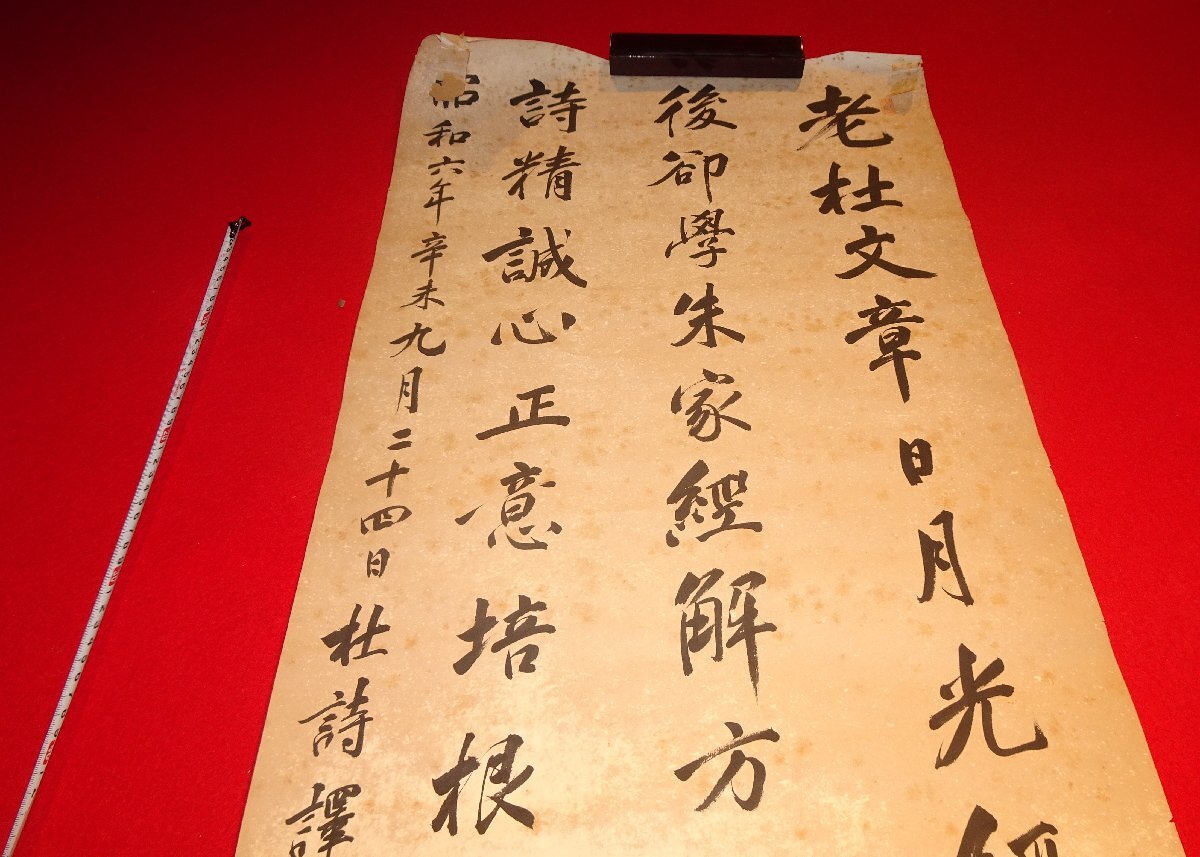 老杜文章日月光
後卻學朱家經解方
詩精誠心正意培根
昭和六年辛未九月二十四日杜詩譯